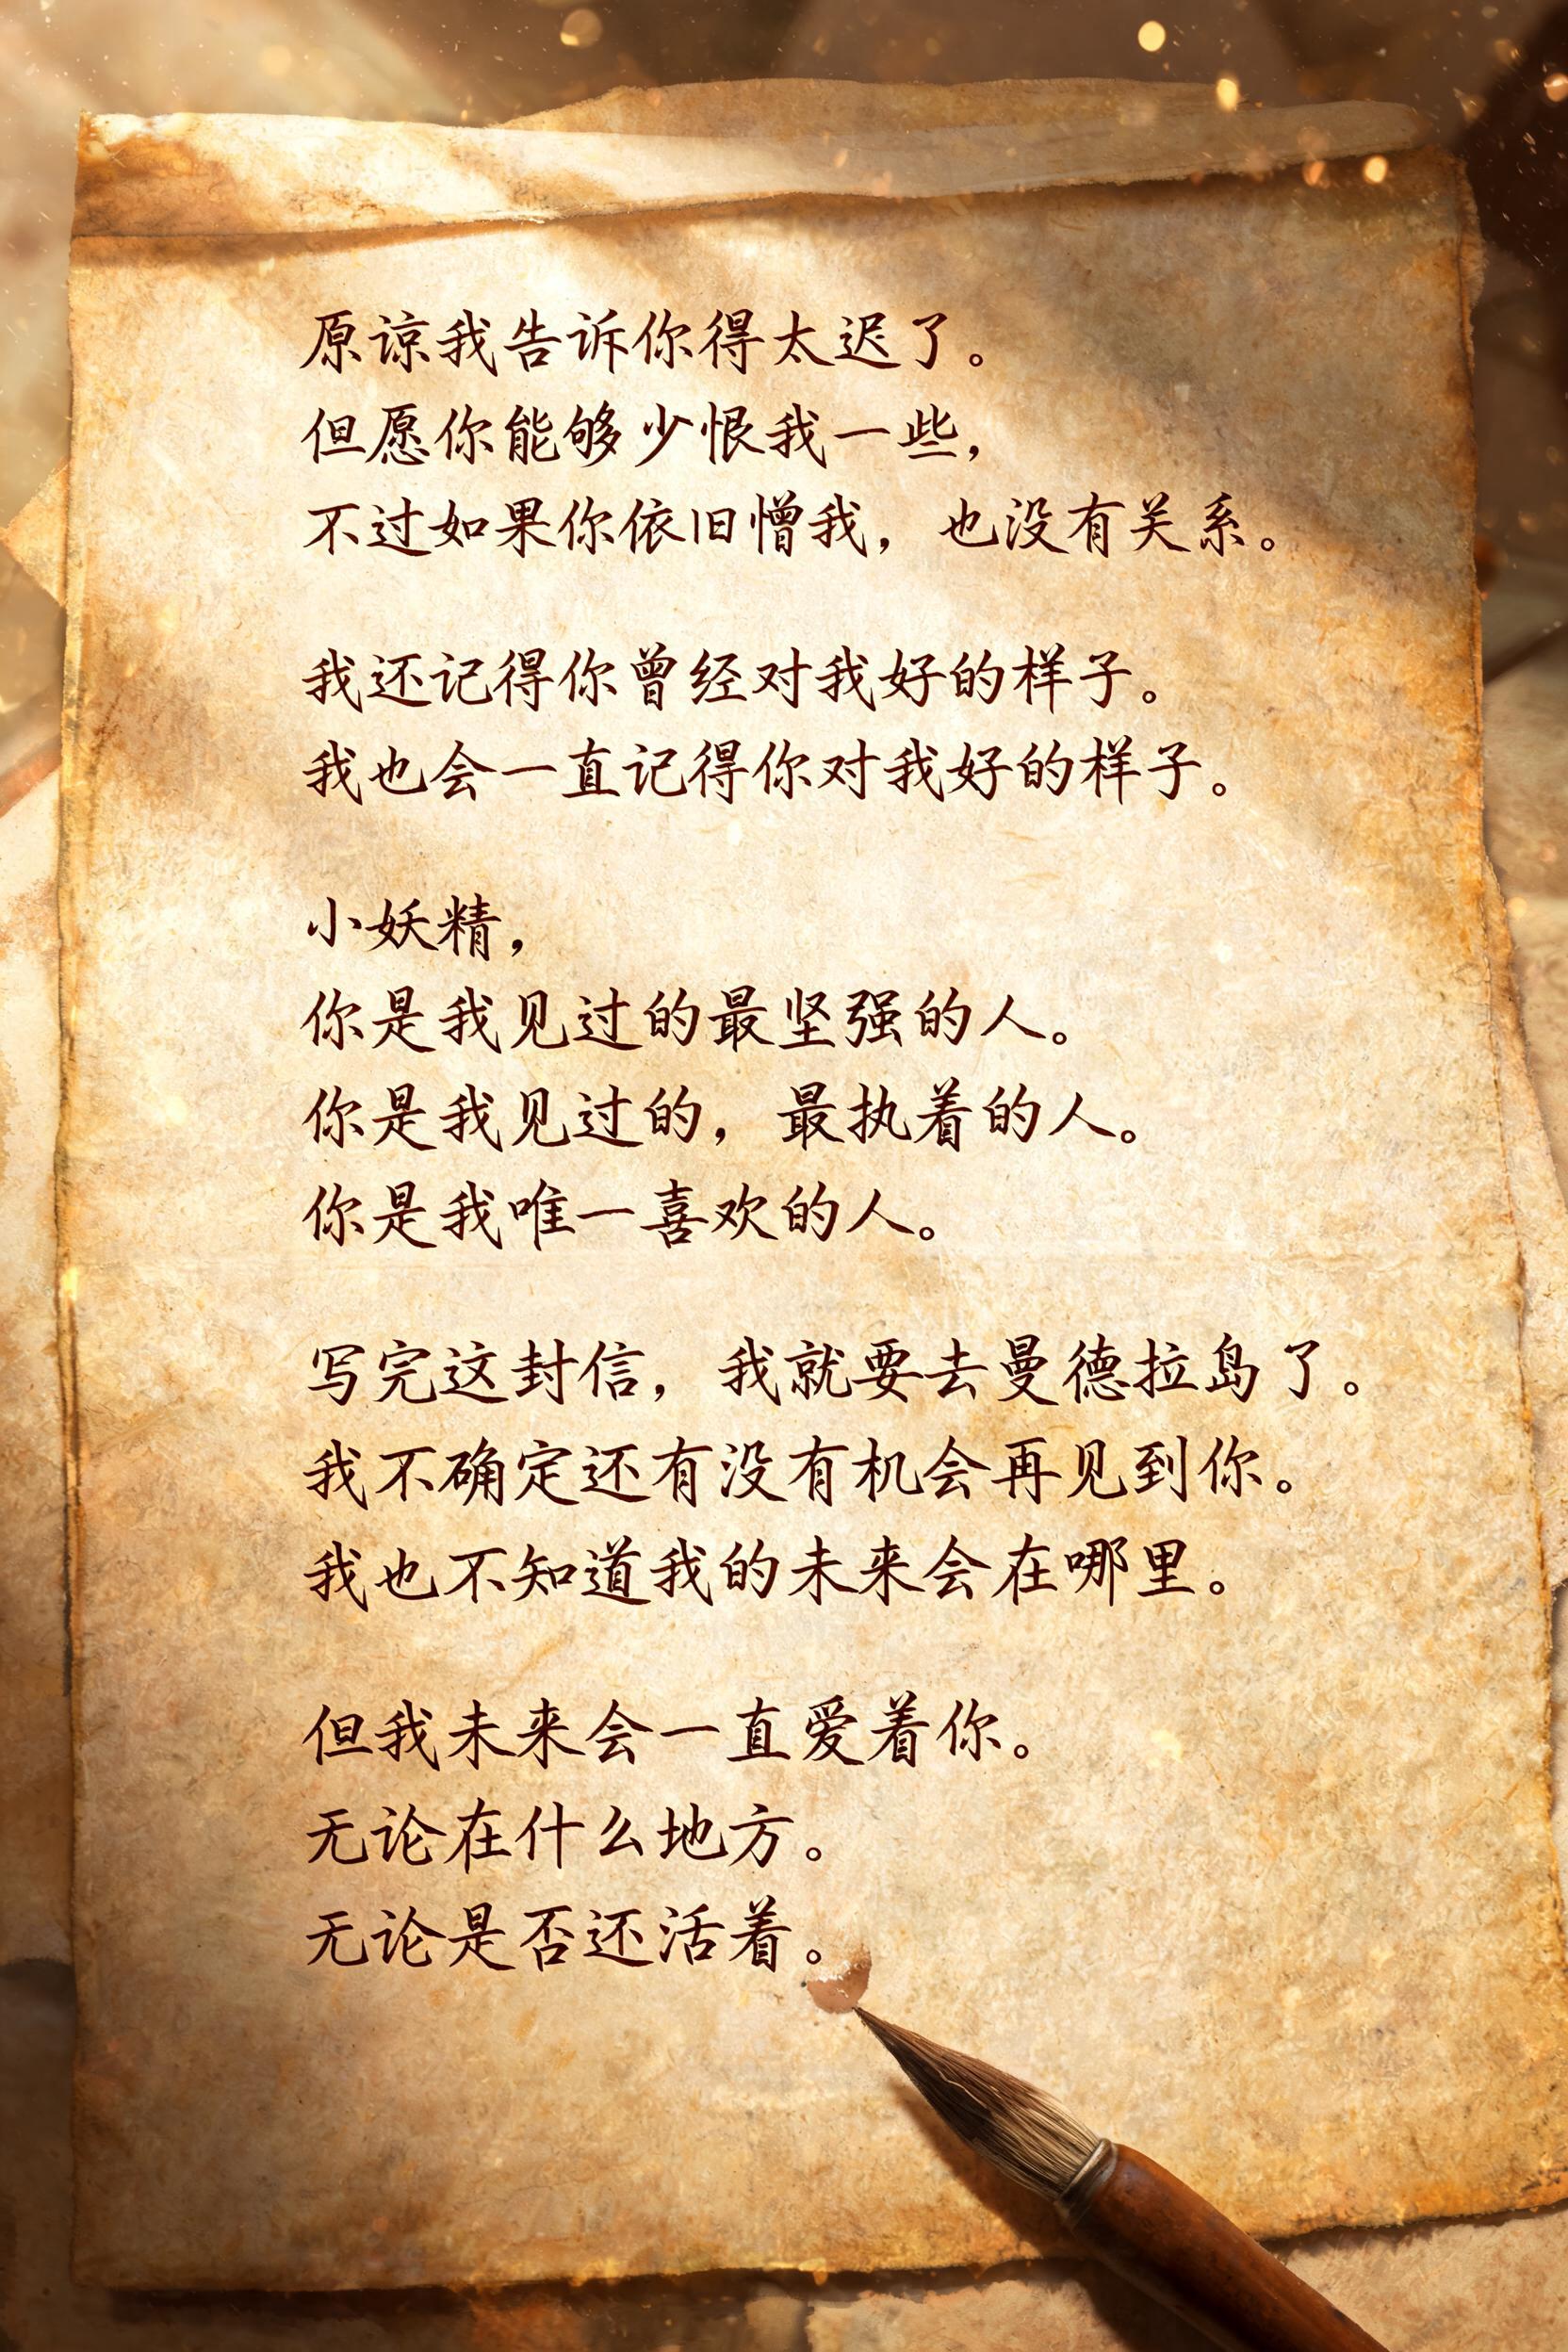 原谅我告诉你得太迟了。
但愿你能够少恨我一些，
不过如果你依旧憎我，也没有关系。
我还记得你曾经对我好的样子。
我也会一直记得你对我好的样子。
小妖精，
你是我见过的最坚强的人。
你是我见过的，最执着的人。
你是我唯一喜欢的人。
写完这封信，我就要去曼德拉岛了。
我不确定还有没有机会再见到你。
我也不知道我的未来会在哪里。
但我未来会一直爱着你。
无论在什么地方。
无论是否还活着。